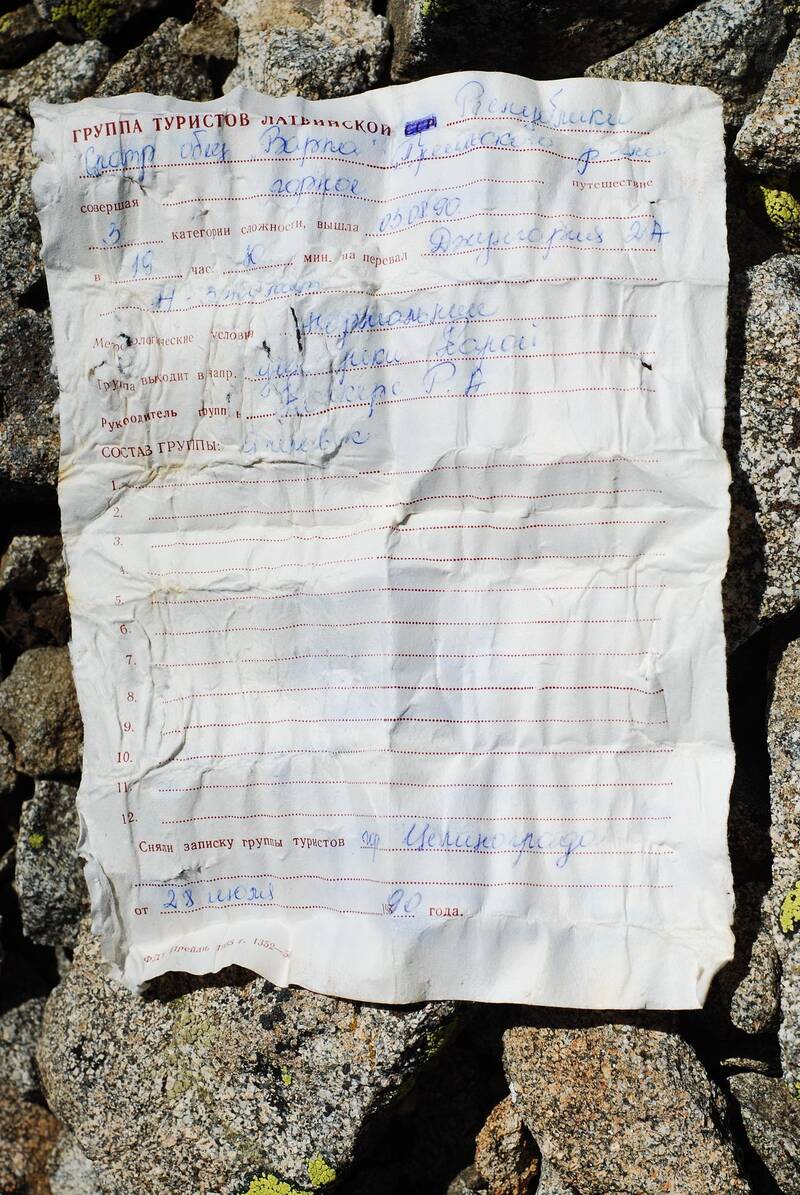 ГРУППА ТУРИСТОВ ЛАТВИЙСКОЙ ССР Республики
общ "Варпа"
совершая горное путешествие
3 категории сложности, вышла 03.08.90
в 19 час. 10 мин. на перевал Джунгария 2А
Метеорологические условия нормальные
Группа выходит в напр. реки
Руководитель группы Р.А
СОСТАВ ГРУППЫ: человек
1.
2.
3.
4.
5.
6.
7.
8.
9.
10.
11.
12.
Сняли записку группы туристов гор Целинограда
от 28 июля 1990 года.
г. 1352—5